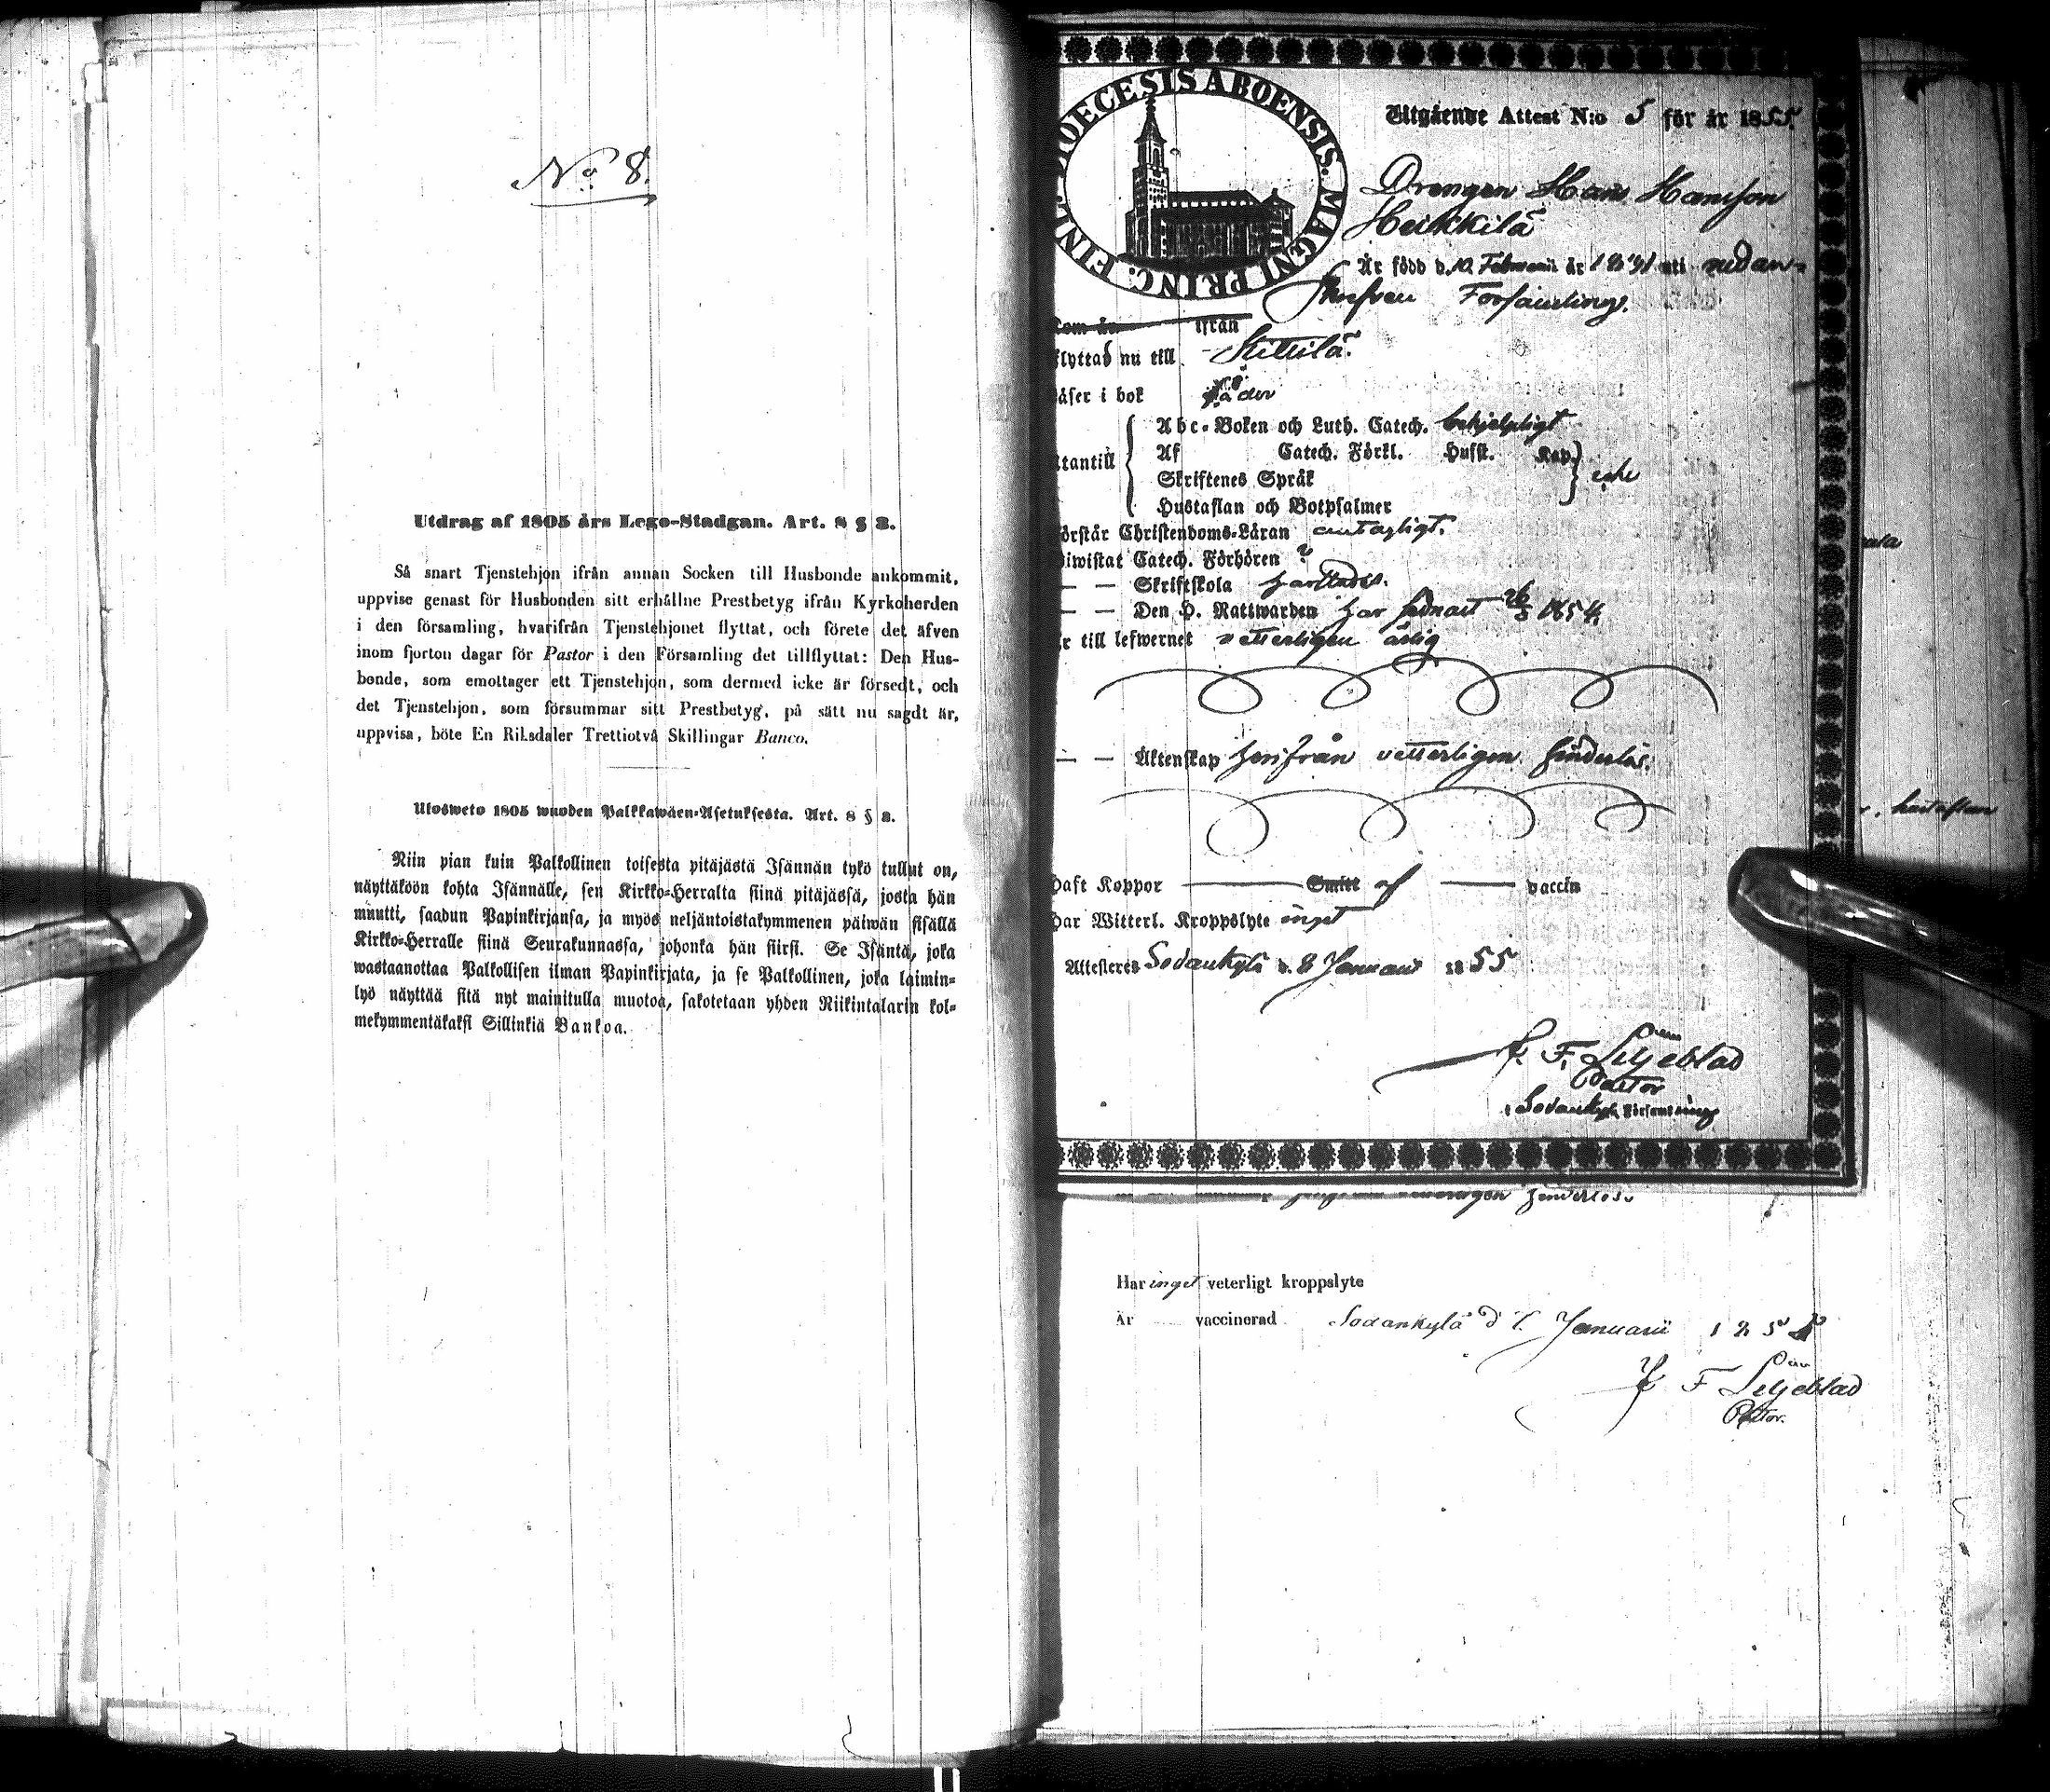 No 8.
Utdrag af 1805 års Lego-Stadgan. Art. 8 § 2.
Så snart Tjenstehjon ifrån annan Socken till Husbonde ankommit,
uppvise genast för Husbonden sitt erhållne Prestbetyg ifrån Kyrkoherden
i den församling, hvarifrån Tjenstehjonet flyttat, och förete det äfven
inom fjorton dagar för Pastor i den Församling det tillflyttat: Den Hus-
bonde, som emottager ett Tjenstehjon, som dermed icke är försedt, och
det Tjenstehjon, som försummar sitt Prestbetyg, på sätt nu sagdt är,
uppvisa, böte En Riksdaler Trettiotvå Skillingar Banco.
Ulosweto 1805 wuoden Palkkawäen-Asetuksesta. Art. 8 § 2.
Niin pian kuin Palkollinen toisesta pitäjästä Isännän tykö tullut on,
näyttäköön kohta Isännälle, sen Kirkko-Herralta siinä pitäjässä, josta hän
muutti, saadun Papinkirjansa, ja myös neljäntoistakymmenen päiwän sisällä
Kirkko-Herralle siinä Seurakunnassa, johonka hän siirsi. Se Isäntä, joka
wastaanottaa Palkollisen ilman Papinkirjata, ja se Palkollinen, joka laimin-
lyö näyttää sitä nyt mainitulla muotoa, sakotetaan yhden Riikintalarin kol-
mekymmentäkaksi Sillinkiä Bankoa.
DIOECESIS ABOENSIS. MAGNI PRINC. FINL.
Utgående Attest N:o 5 för år 1855.
Drengen Hans Hansson
Heikkilä
Är född d. 10 Februarii år 1831 uti nedan-
skrefven Församling.
Kom år ifrån
flyttad nu till Kittilä.
läser i bok
Abc-Boken och Luth. Catech. behjelpligt
Utantill Af Catech. Förkl. Hufst. Kap.
Skriftenes Språk
Hustaflan och Botpsalmer
Förstår Christendoms-Läran antagligt.
Biwistat Catech. Förhören
— — Skriftskola
— — Den H. Nattwarden har sednast 26/3 1854
Är till lefwernet vetterligen ärlig
— — Äktenskap härifrån vetterligen hinderlös.
Haft Koppor Smitt af vaccin
Har Witterl. Kroppslyte inget
Attesteres Sodankylä d. 8 Januari 1855
F. Liljeblad
Pastor
i Sodankylä Församling
vetterligen hinderlös.
Har inget veterligt kroppslyte
Är vaccinerad Sodankylä d Januarii 185
F Liljeblad
Pastor.